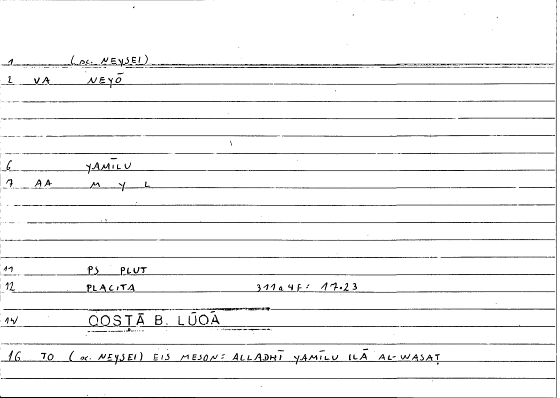 1 (sc. NEYSEI)
2 VA NEYŌ
6 YAMĪLU
7 AA M Y L
11 PS PLUT
12 PLACITA 311a4F: 17.23
14 QOSṬĀ B. LŪQĀ
16 TO (sc. NEYSEI) EIS MESON: ALLADHĪ YAMĪLU ILĀ AL-WASAṬ